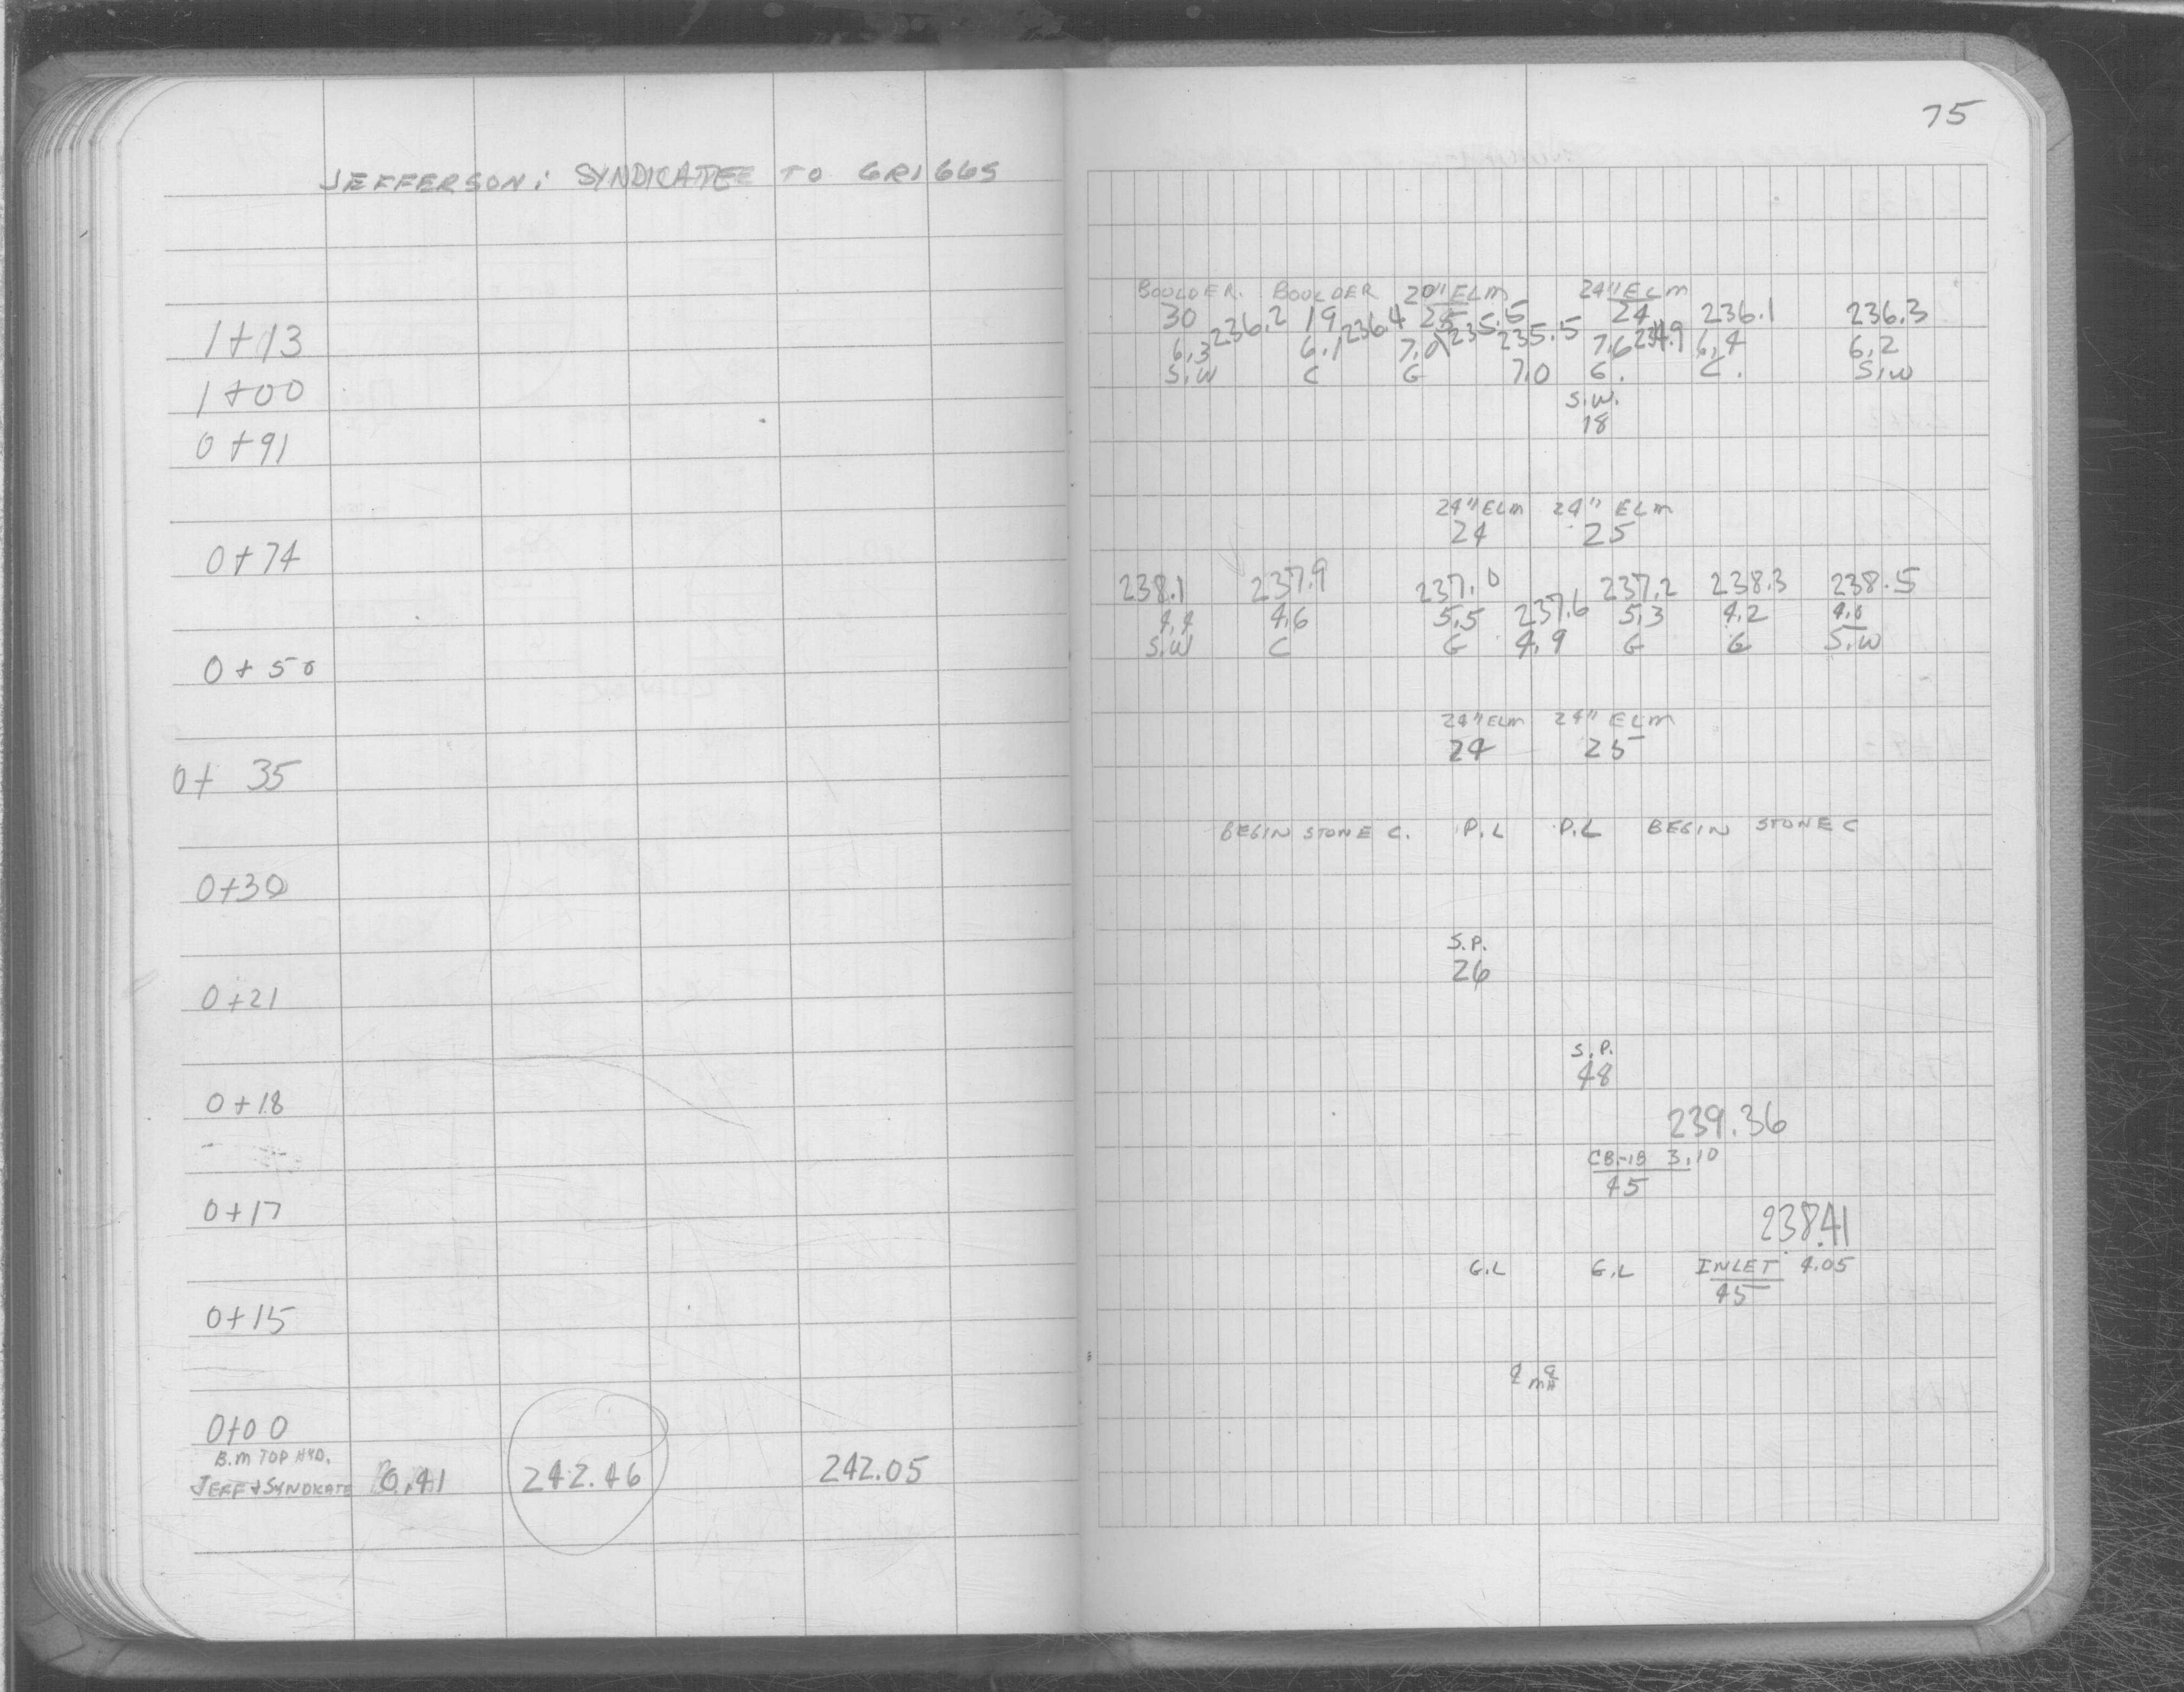 75
JEFFERSON: SYNDICATE TO GRIGGS
1+13
1+00
0+91
0+74
0+50
0+35
0+30
0+21
0+18
0+17
0+15
0+00
B.M TOP HYD.
JEFF & SYNDICATE 0.41 242.46 242.05
BOULDER. BOULDER 20" ELM 24" ELM
30 236.2 19 236.4 25 235.5 24 236.1 236.3
6.3 6.1 7.0 235.5 7.6 234.9 6.4 6.2
S.W C G 7.0 G. C. S.W
S.W.
18
24" ELM 24" ELM
24 25
238.1 237.9 237.0 237.2 238.3 238.5
4.4 4.6 5.5 237.6 5.3 4.2 4.0
S.W C G 4.9 G G S.W
24" ELM 24" ELM
24 25
BEGIN STONE C. P.L P.L BEGIN STONE C
S.P.
26
S.P.
48
239.36
CB.-1B 3.10
45
238.41
G.L G.L INLET 4.05
45
MH